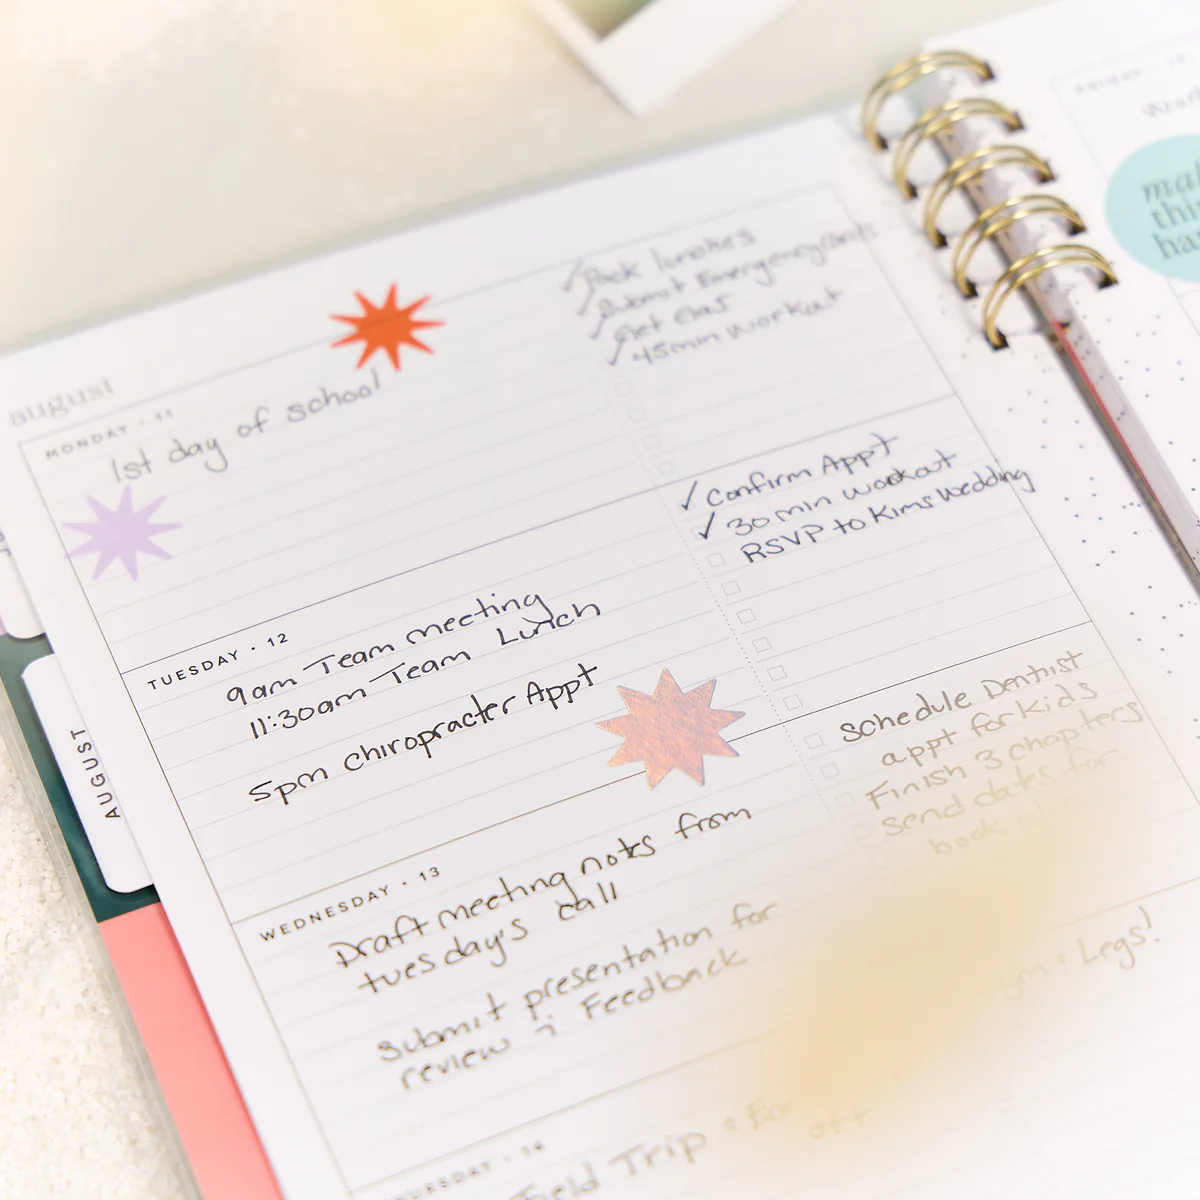 august
MONDAY · 11
1st day of school
Pack lunches
Submit Emergency cards
Get Gas
45min workout
TUESDAY · 12
9am Team meeting
11:30am Team Lunch
5pm chiropracter Appt
Confirm Appt
30 min workout
RSVP to Kims Wedding
WEDNESDAY · 13
Draft meeting notes from
tuesday's call
Submit presentation for
review + Feedback
Schedule Dentist
appt for kids
Finish 3 chapters
send dates for
book
Legs!
14
Field Trip
off
AUGUST
FRIDAY